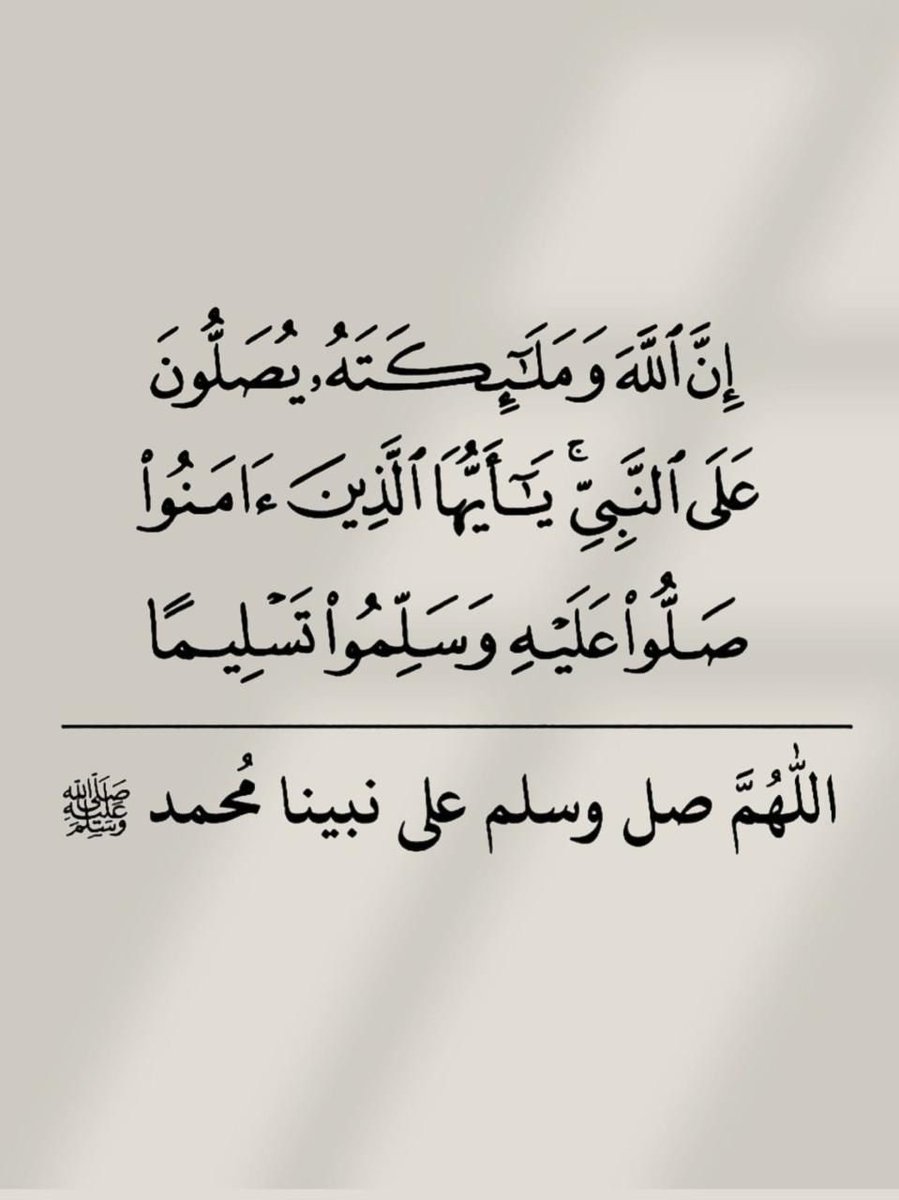 إِنَّ ٱللَّهَ وَمَلَـٰٓئِكَتَهُۥ يُصَلُّونَ
عَلَى ٱلنَّبِىِّ ۚ يَـٰٓأَيُّهَا ٱلَّذِينَ ءَامَنُوا۟
صَلُّوا۟ عَلَيْهِ وَسَلِّمُوا۟ تَسْلِيمًا
اللّٰهُمَّ صل وسلم على نبينا مُحمد ﷺ